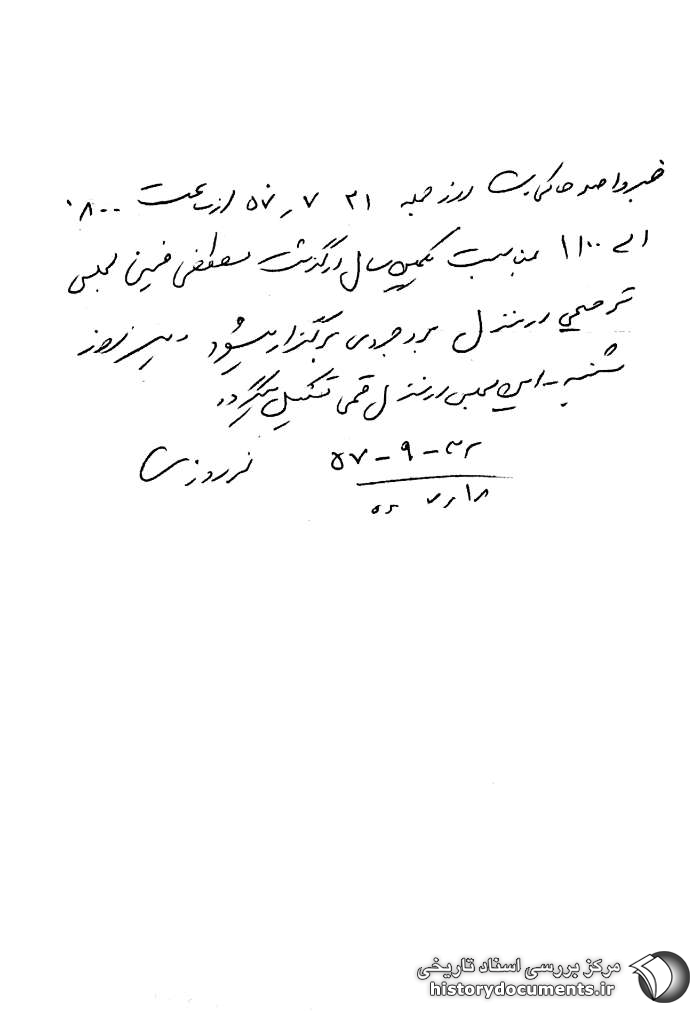 خبر واصله حاکی است روز جمعه ۲۱ ۷ر۵۷ از ساعت ۰۸۰۰
الی ۱۱۰۰ بمناسبت یکمین سال درگذشت مصطفی خمینی مجلس
ترحیمی در منزل بروجردی برگزار میشود و نیز روز
شنبه - این مجلس در منزل قمی تشکیل میگردد.
نوروزی
۵۷ - ۹ - ۳۲
۱۸ر۷
مرکز بررسی اسناد تاریخی
historydocuments.ir